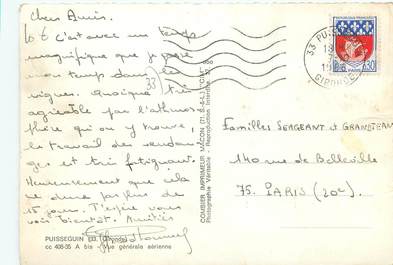 Chers Amis.
C'est avec un temps
magnifique que je passe
mon temps dans les
vignes. Quoique très
agréable par l'athmos-
phère qu'on y trouve,
le travail des vendan-
ges est très fatiguant.
Heureusement que cela
ne dure pas plus de
15 jours. J'espère vous
voir bientôt. Amitiés
PUISSEGUIN (Gironde)
cc 406-35 A bis - Vue générale aérienne
COMBIER IMPRIMEUR MACON (71. S.-&-L.) "CIM"
Photographie Véritable - Reproduction Interdite
33 PUISSEGUIN
GIRONDE
REPUBLIQUE FRANÇAISE
0,30
PARIS
Familles SERGEANT et GRANSTEAN
140 rue de Belleville
75. PARIS (20e)